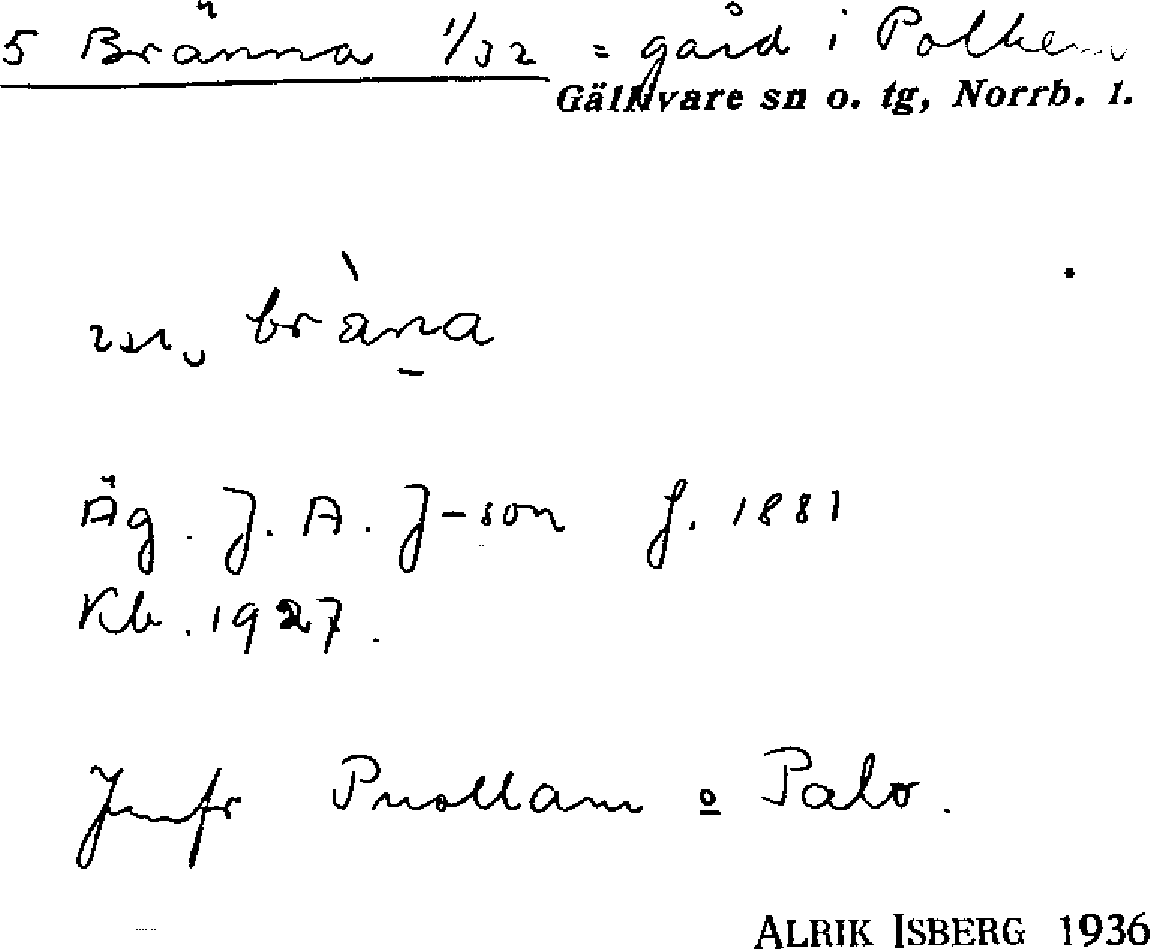 5 Bränna 1/32 = gård i Polken
Gällivare sn o. tg, Norrb. l.
bràna
Äg. J. A. J-son f. 1881
Kb. 1927.
Jmfr Puollam o Palo.
ALRIK ISBERG 1936